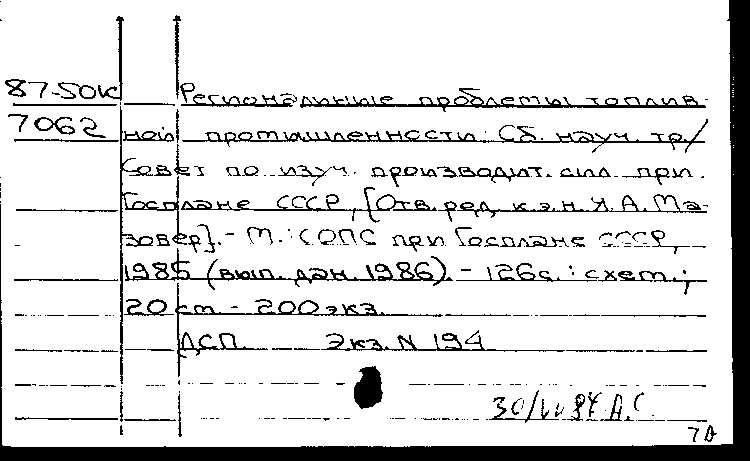 87-50К Региональные проблемы топлив-
7062 ной промышленности: Сб. науч. тр./
Совет по изуч. производит. сил при
Госплане СССР, [Отв. ред. к.э.н. Я.А. Ма-
зовер]. - М.: СОПС при Госплане СССР,
1985 (вып. дан. 1986). - 126с. : схем.;
20 см. - 200 экз.
ДСП. Экз. N 194
А.С.